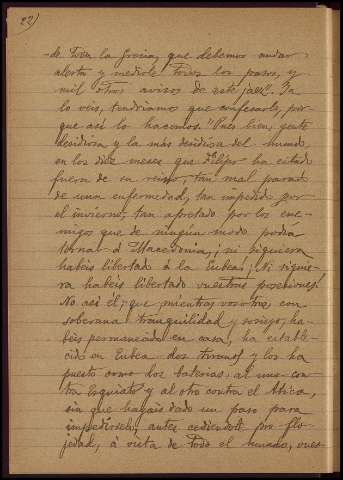 22)
de toda la Grecia, que debemos andar
alerta y medirle todos los pasos, y
mil otros avisos de este jaez". Ya
lo veis, tendríamos que confesarlo, por-
que así lo hacemos. "Pues bien, gente
desidiosa y la más desidiosa del mundo,
en los diez meses que Felipo ha estado
fuera de su reino, tan mal parado
de una enfermedad, tan impedido por
el invierno, tan apretado por los ene-
migos que de ningún modo podía
tornar á Macedonia, ¡ni siquiera
habéis libertado á la Eubea! ¡Ni sigue-
ra habéis libertado vuestras posesiones!
No así él; que mientras vosotros, con
soberana tranquilidad y sosiego, ha-
béis permanecido en casa, ha estable-
cido en Eubea dos tiranos y los ha
puesto como dos baterías: al uno con-
tra Esquiato y al otro contra el Atica,
sin que hayáis dado un paso para
impedírselo; antes cediendole por flo-
jedad, á vista de todo el mundo, vues-